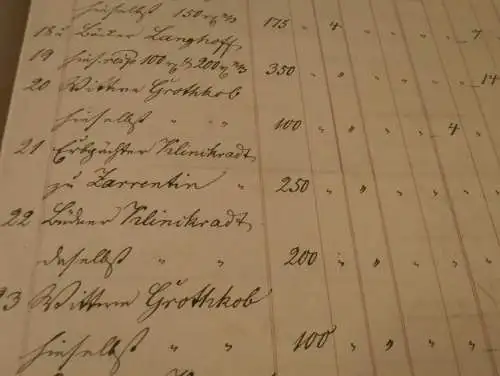 hieselbst 150 rx n/3 175 " 4 " " " 7 "
18 u Büdner Langhoff
19 hies. resp 100 rx n/3 200 rx n/3 350 " " " " " 14
20 Wittwe Grothkob
hieselbst " " 100 " " " " 4 " "
21 Erbpächter Klinikradt
zu Zarrentin " 250 " " " " " "
22 Büdner Klinikradt
daselbst " " 200 " " " " " "
23 Wittwe Grothkob
hieselbst " " 100 " " " " "